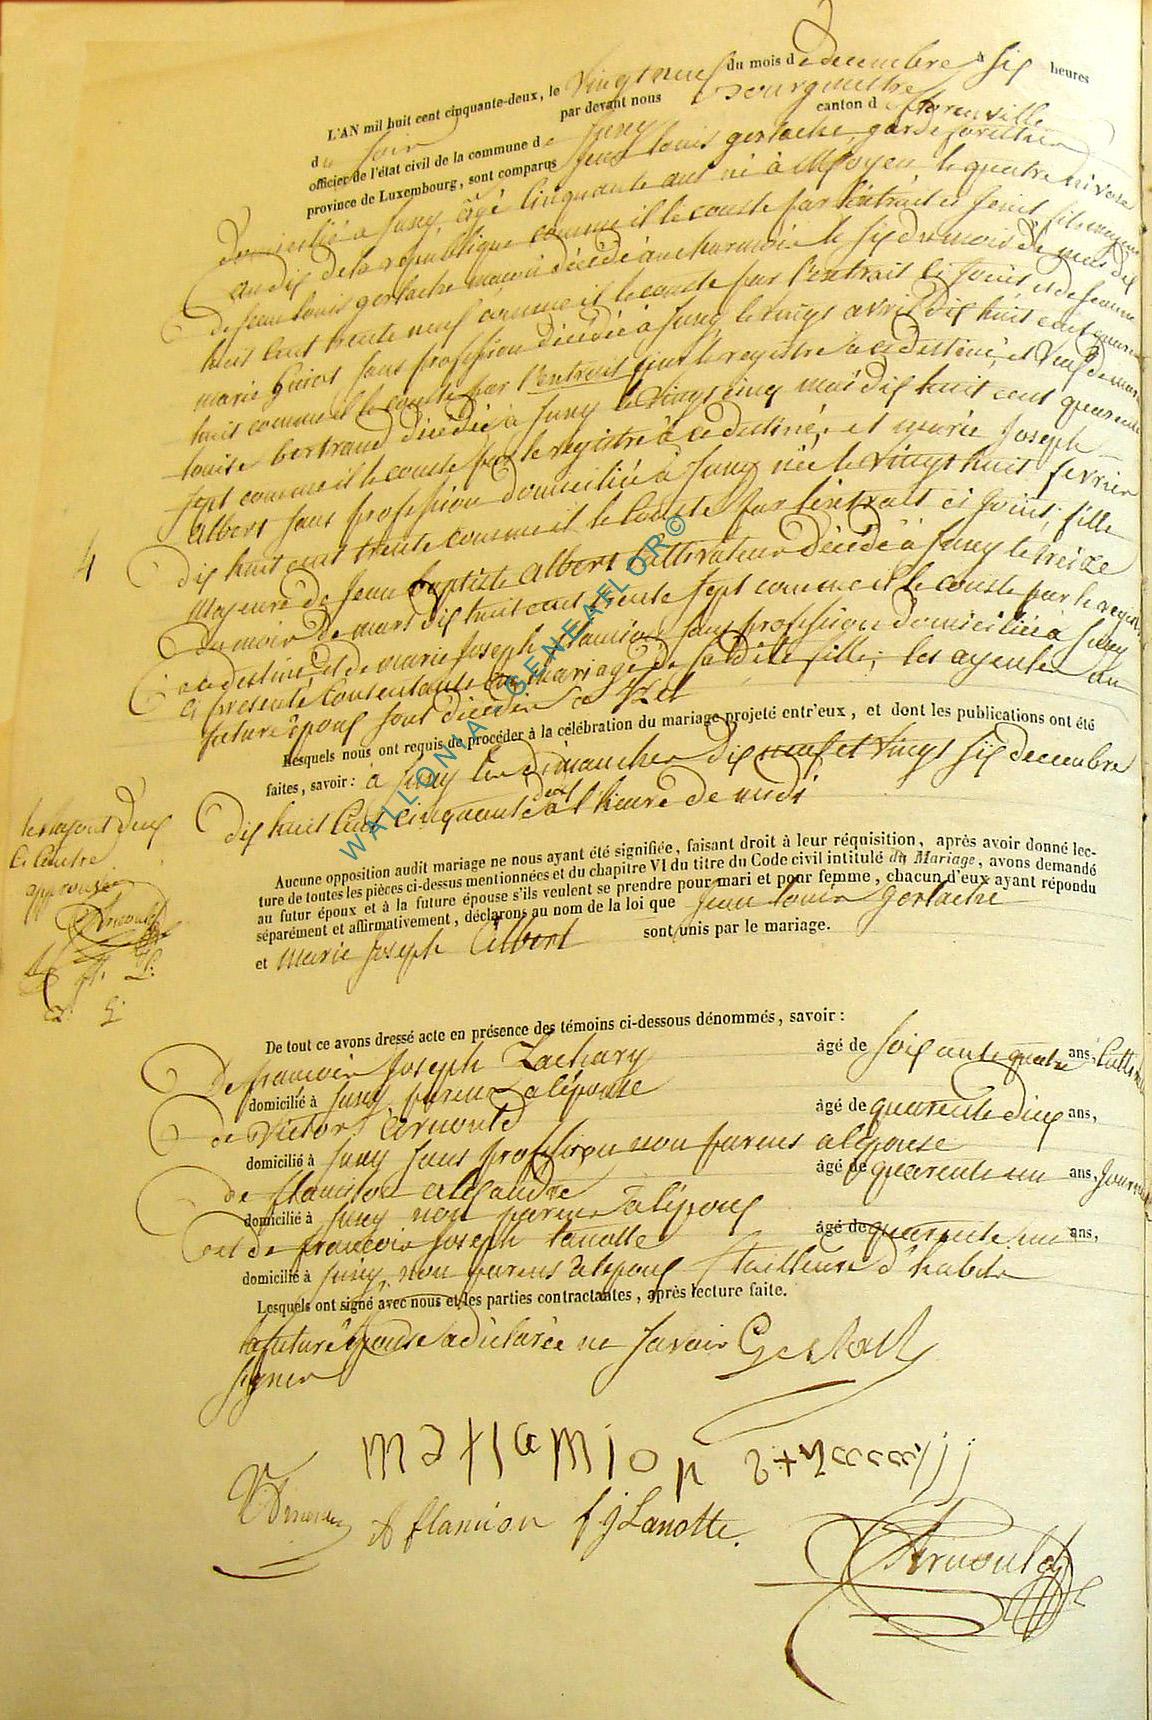 L'AN mil huit cent cinquante-deux, le Vingt neuf du mois de decembre à six heures
du soir par devant nous Bourgmestre
officier de l'état civil de la commune de Suxy canton de florenville
province de Luxembourg, sont comparus Jean louis gerlache garde forestier
domicilié à Suxy, âgé cinquante ans né à Moyen le quatre nivose
an dix de la republique comme il le conste par l'extrait ci joint fils majeur
de Jean louis gerlache décédé le six du mois de mai dix
huit cent trente neuf comme il le conste par l'extrait ci joint et de jeanne
marie sans profession décédée à Suxy le vingt avril dix huit cent quarente
huit comme il le conste par l'extrait sur le registre à ce destiné, et veuf de marie
louise bertrand décédée à Suxy le vingt cinq mai dix huit cent quarente
sept comme il le conste par le registre à ce destiné, et marie Joseph
albert sans profession domiciliée à Suxy née le vingt huit fevrier
dix huit cent trente comme il le conste par l'extrait ci joint, fille
majeure de Jean baptiste albert cultivateur décédé à Suxy le treize
du mois de mars dix huit cent trente sept comme il le conste par le registre
a ce destiné, et de marie Joseph flamion sans profession domiciliée à Suxy
ci presente consentante au mariage de sa dite fille, les ayeules du
futur époux sont décédés à Izel
Lesquels nous ont requis de procéder à la célébration du mariage projeté entr'eux, et dont les publications ont été
faites, savoir: à Suxy les dimanches dix neuf et vingt six decembre
dix huit cent cinquante deux à l'heure de midi
Aucune opposition audit mariage ne nous ayant été signifiée, faisant droit à leur réquisition, après avoir donné lec-
ture de toutes les pièces ci-dessus mentionnées et du chapitre VI du titre du Code civil intitulé du Mariage, avons demandé
au futur époux et à la future épouse s'ils veulent se prendre pour mari et pour femme, chacun d'eux ayant répondu
séparément et affirmativement, déclarons au nom de la loi que Jean louis gerlache
et marie Joseph Albert sont unis par le mariage.
le rajout deux
ci contre
approuvé
Arnould
4
De tout ce avons dressé acte en présence des témoins ci-dessous dénommés, savoir:
De francois Joseph Zachary âgé de soixante quatre ans,
domicilié à Suxy parens a l'épouse
de Victor arnould âgé de quarente deux ans,
domicilié à Suxy sans profession non parens a l'epouse
de flamion alexandre âgé de quarente un ans,
domicilié à Suxy non parens a l'époux
et de francois Joseph lanotte âgé de quarente un ans,
domicilié à Suxy non parens a l'epoux tailleure d'habits
Lesquels ont signé avec nous et les parties contractantes, après lecture faite.
la future épouse a déclarée ne savoir
signer
A flamion f j Lanotte.
Arnould
WALLONIA GENEAFLOR©